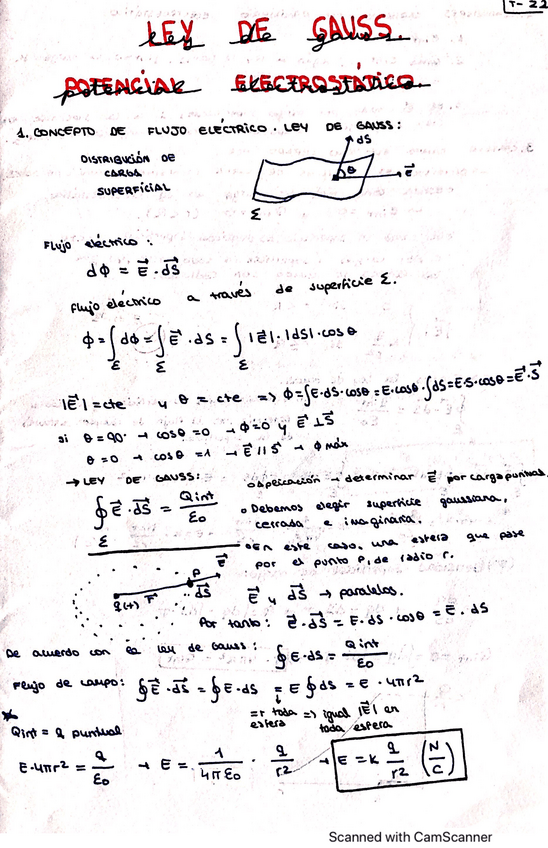 T-22
LEY DE GAUSS.
POTENCIAL ELECTROSTÁTICO.
1. CONCEPTO DE FLUJO ELÉCTRICO. LEY DE GAUSS:
DISTRIBUCIÓN DE
CARGA
SUPERFICIAL
dS
θ
E⃗
Σ
Flujo eléctrico:
dΦ = E⃗ · dS⃗
Flujo eléctrico a través de superficie Σ.
Φ = ∫_Σ dΦ = ∫_Σ E⃗ · dS = ∫_Σ |E⃗| · |dS| · cos θ
|E⃗| = cte y θ = cte => Φ = ∫E·dS·cosθ = E·cosθ · ∫dS = E·S·cosθ = E⃗·S⃗
si θ = 90° → cosθ = 0 → Φ = 0 y E⃗ ⊥ S⃗
θ = 0 → cosθ = 1 → E⃗ // S⃗ → Φ máx
→ LEY DE GAUSS:
∮_Σ E⃗ · dS⃗ = Qint / ε0
o Aplicación → determinar E⃗ por carga puntual.
o Debemos elegir superficie gaussiana,
cerrada e imaginaria.
o En este caso, una esfera que pase
por el punto P, de radio r.
q(+) r⃗ P E⃗ dS⃗
E⃗ y dS⃗ → paralelos.
Por tanto: E⃗ · dS⃗ = E · dS · cosθ = E · dS
De acuerdo con la ley de Gauss: ∮ E · dS = Qint / ε0
Flujo de campo: ∮ E⃗ · dS⃗ = ∮ E · dS = E ∮ dS = E · 4πr²
= r toda => igual |E⃗| en
esfera toda esfera
Qint = q puntual
E · 4πr² = q / ε0 → E = 1 / 4πε0 · q / r² → E = K q / r² (N / C)
Scanned with CamScanner